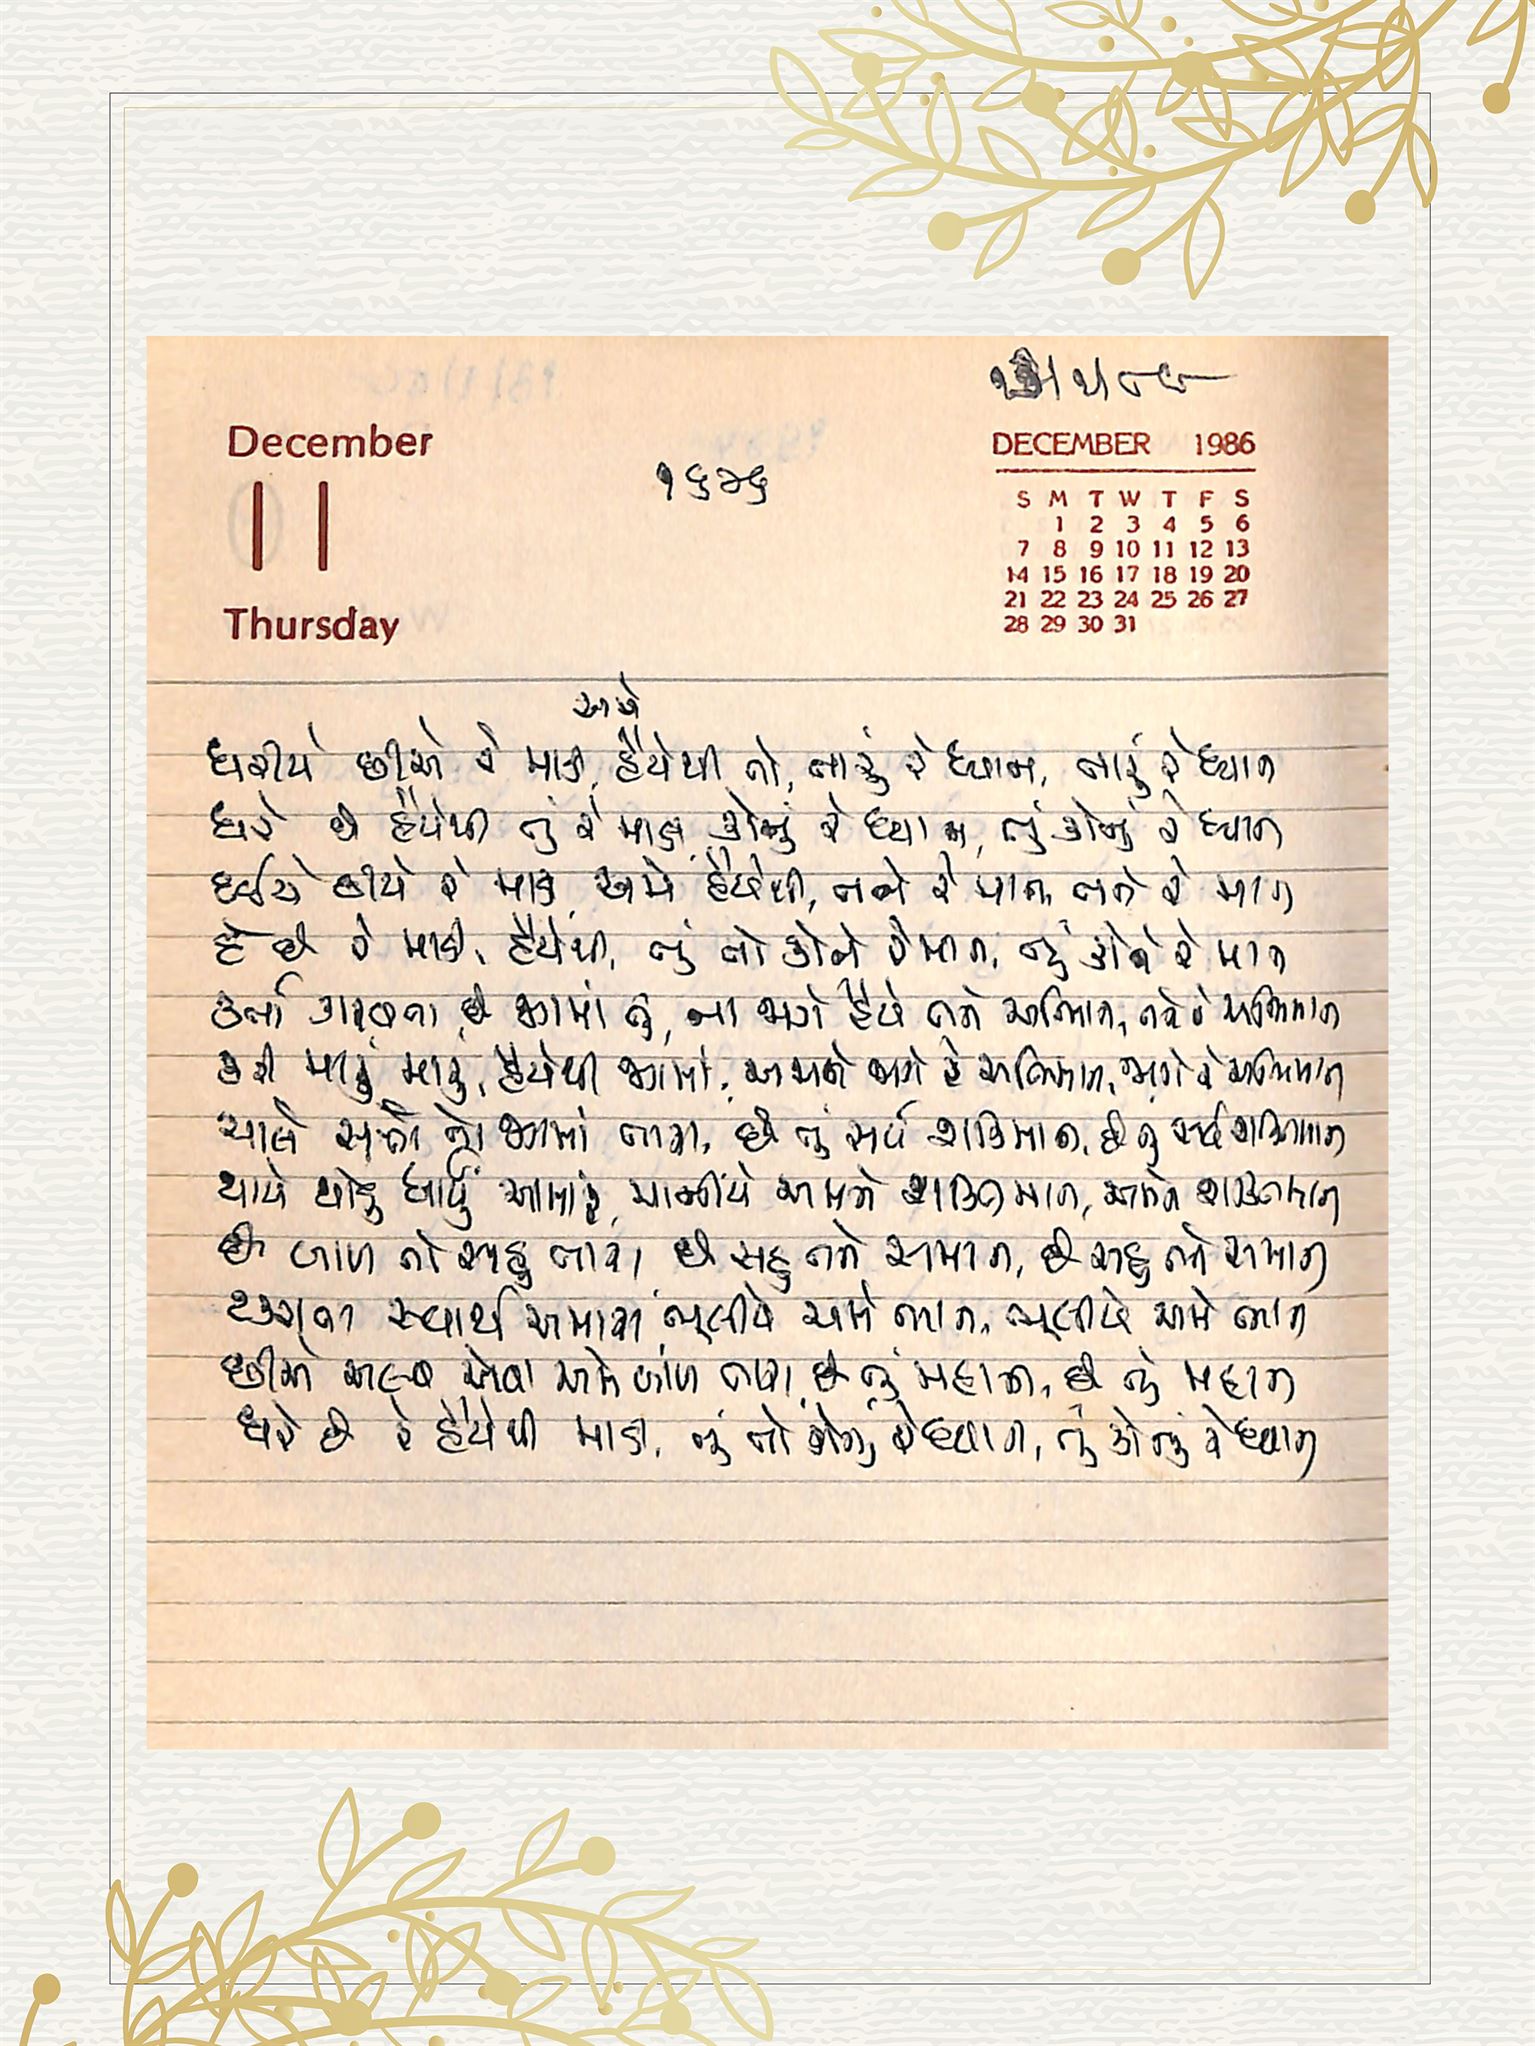 December
11
Thursday
૧૬૨૬
DECEMBER 1986
S M T W T F S
1 2 3 4 5 6
7 8 9 10 11 12 13
14 15 16 17 18 19 20
21 22 23 24 25 26 27
28 29 30 31
અમે
ધરીયે છીએ રે માડી, હૈયેથી તો, તારું રે ધ્યાન, તારું રે ધ્યાન
ધરે છે હૈયેથી તું રે માડી, કોનું રે ધ્યાન, તું કોનું રે ધ્યાન
દઈએ છીયે રે માડી, અમે હૈયેથી, તને રે માન, તને રે માન
દે છે રે માડી, હૈયેથી, તું તો કોને રે માન, તું કોને રે માન
કર્તા કારવતા છે જગમાં તું, ના જાગે હૈયે તને અભિમાન, તને રે અભિમાન
કરી મારું મારું, હૈયેથી જગમાં, અમને જાગે રે અભિમાન, જાગે રે અભિમાન
ચાલે સત્તા તો જગમાં તારી, છે તું સર્વ શક્તિમાન, છે તું સર્વ શક્તિમાન
થાયે થોડું ધાર્યું અમારું, માનીયે અમને શક્તિમાન, અમને શક્તિમાન
છે બાળ તો સહુ તારા, છે સહુ તને સમાન, છે સહુ તને સમાન
ટકરાતા સ્વાર્થ અમારા, ભૂલીયે અમે ભાન, ભૂલીયે અમે ભાન
છીએ અલ્પ એવા અમે બાળ તારા, છે તું મહાન, છે તું મહાન
ધરે છે રે હૈયેથી માડી, તું તો કોનું રે ધ્યાન, તું કોનું રે ધ્યાન